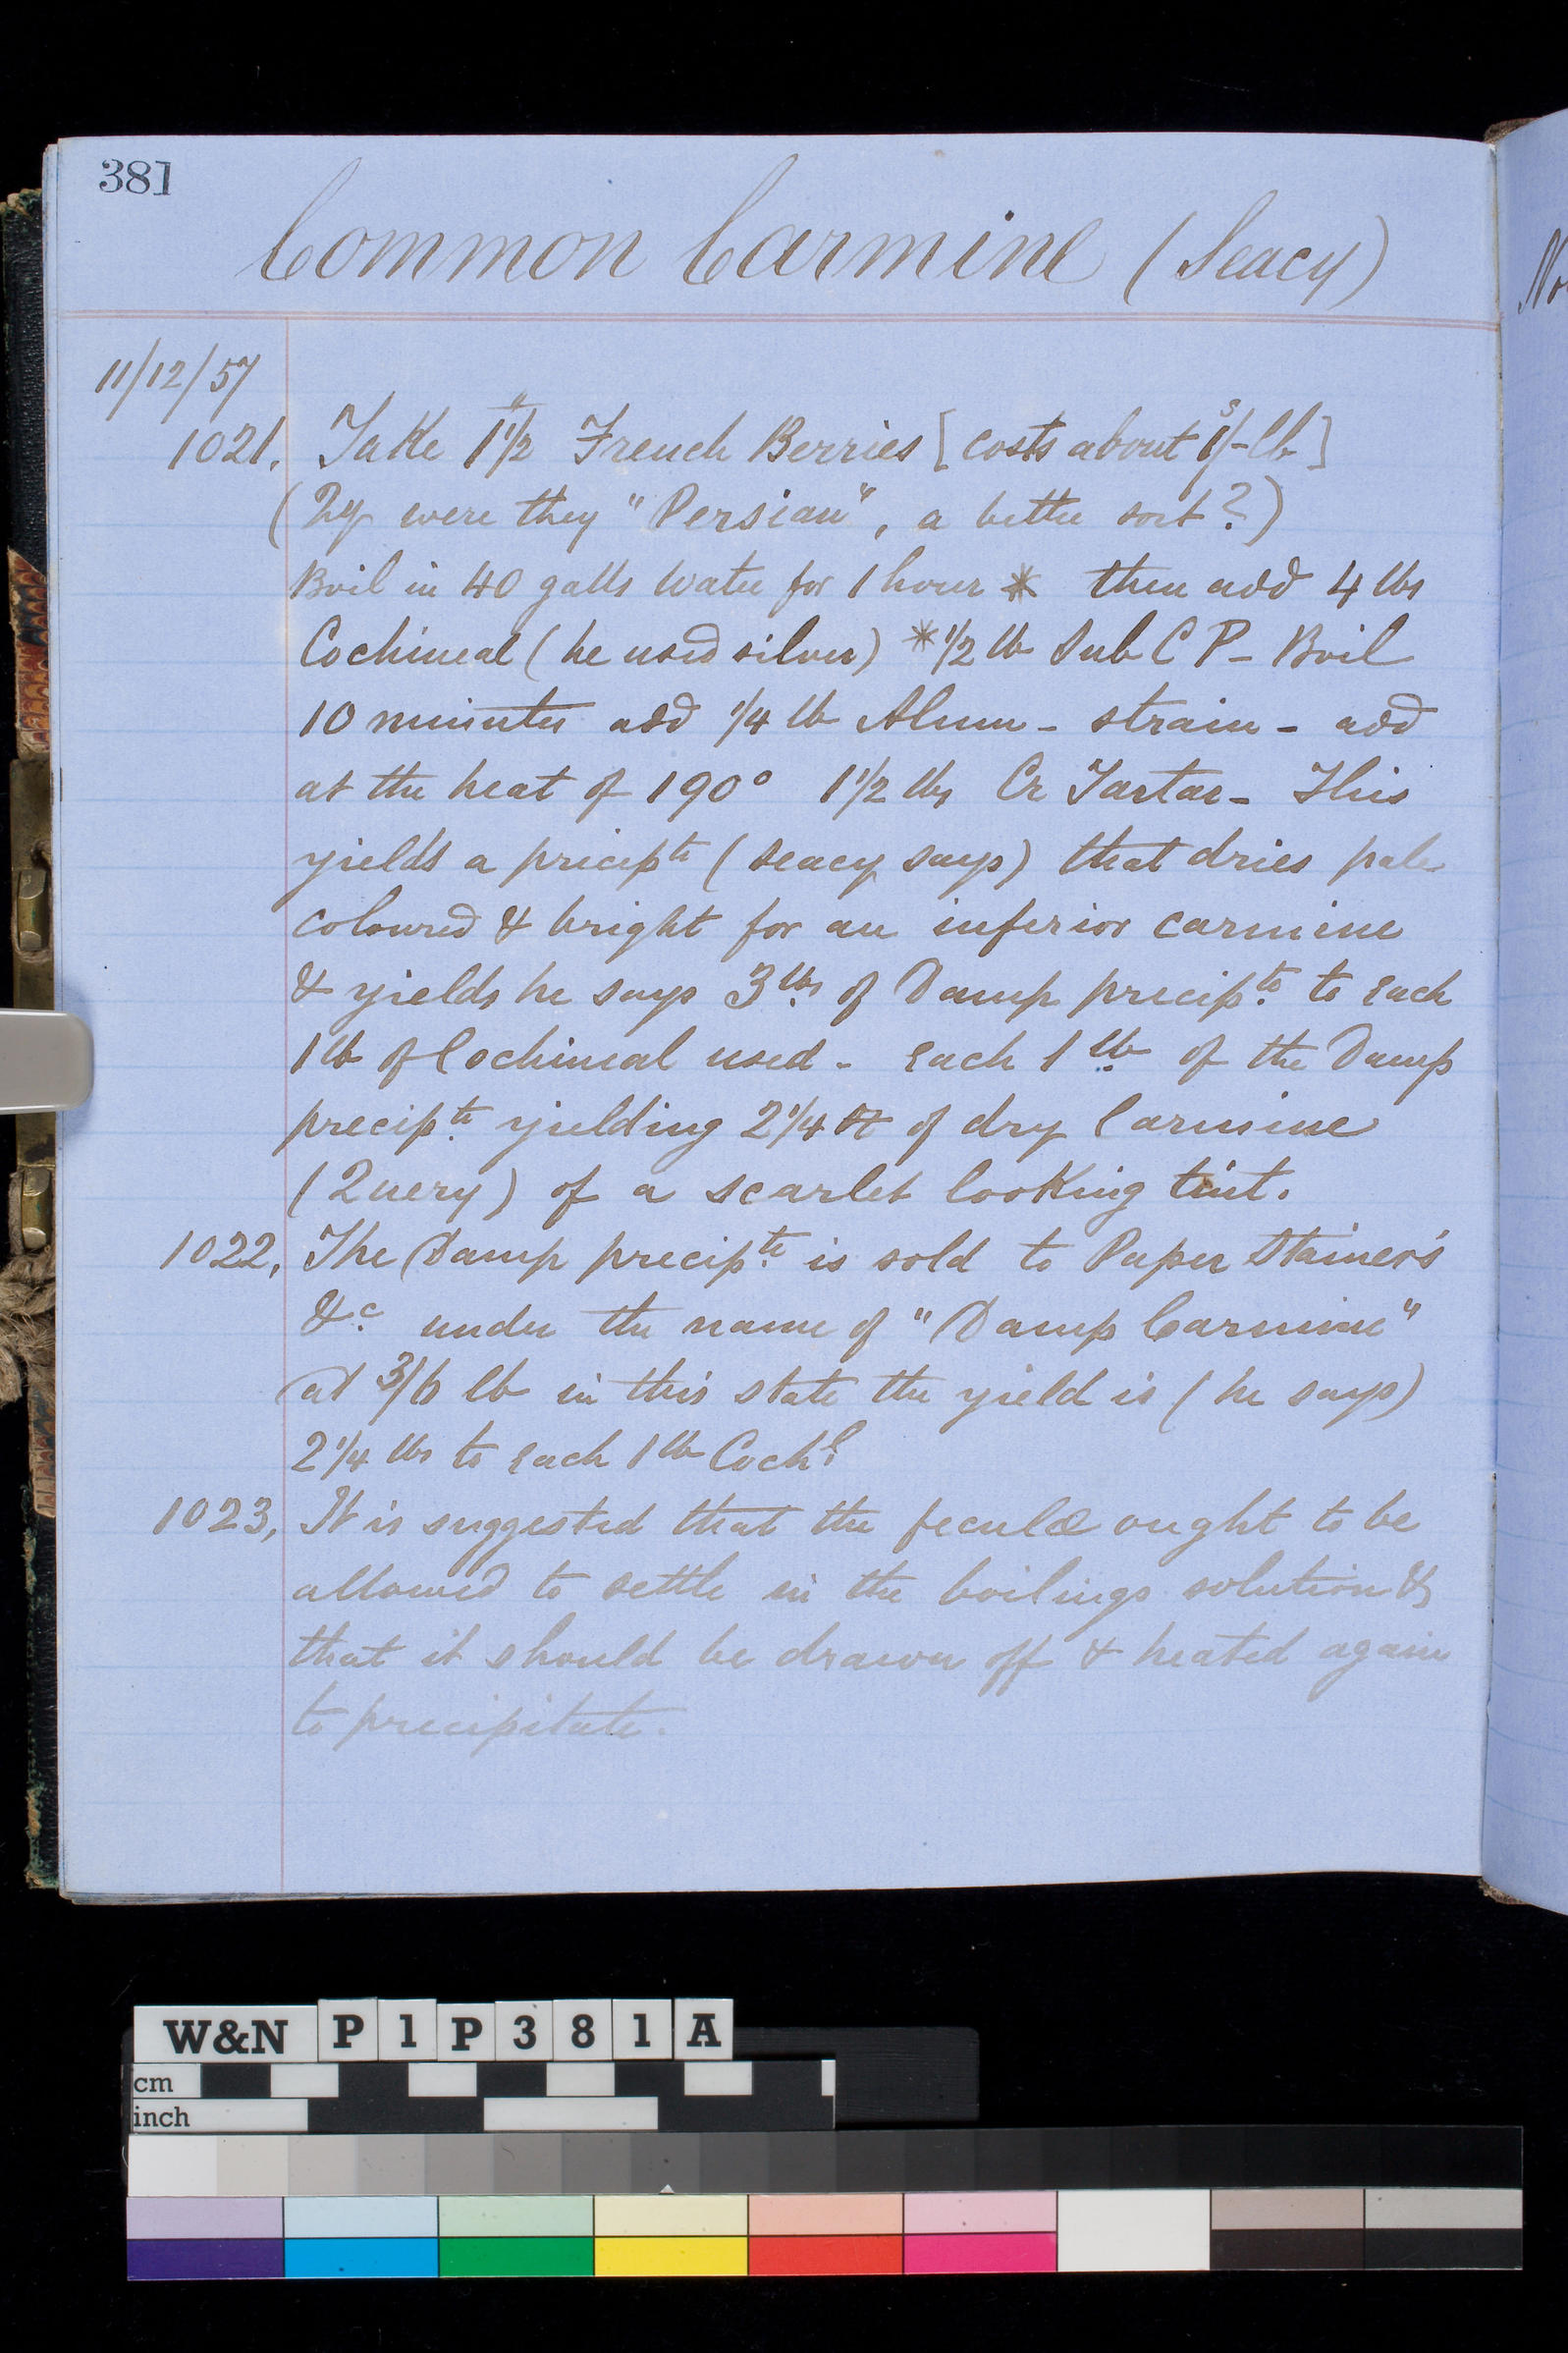 381
Common Carmine (Seacy)
11/12/57
1021. Take 1 1/2 French Berries [costs about 1/- lb]
(Qy were they "Persian", a better sort?)
Boil in 40 galls Water for 1 hour * then add 4 lbs
Cochineal (he used silver) * 1/2 lb Sub C P - Boil
10 minutes add 1/4 lb Alum - strain - add
at the heat of 190° 1 1/2 lbs Cr Tartar - This
yields a precipte (Seacy says) that dries pale
coloured & bright for an inferior carmine
& yields he says 3 lbs of Damp precipte to each
1 lb of Cochineal used - Each 1 lb of the Damp
precipte yielding 2 1/4 oz of dry Carmine
(Query) of a scarlet looking tint.
1022, The Damp precipte is sold to Paper Stainer's
&c under the name of "Damp Carmine"
at 3/6 lb in this state the yield is (he says)
2 1/4 lbs to each 1 lb Cochl
1023, It is suggested that the feculæ ought to be
allowed to settle in the boilings solution &
that it should be drawn off & heated again
to precipitate.
No
W&N P1P381A
cm
inch